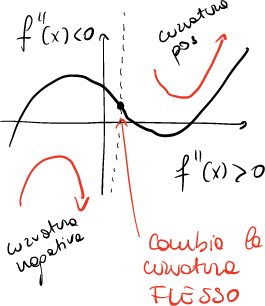 f''(x)<0
curvatura
pos
f''(x)>0
curvatura
negativa
cambia la
curvatura
FLESSO